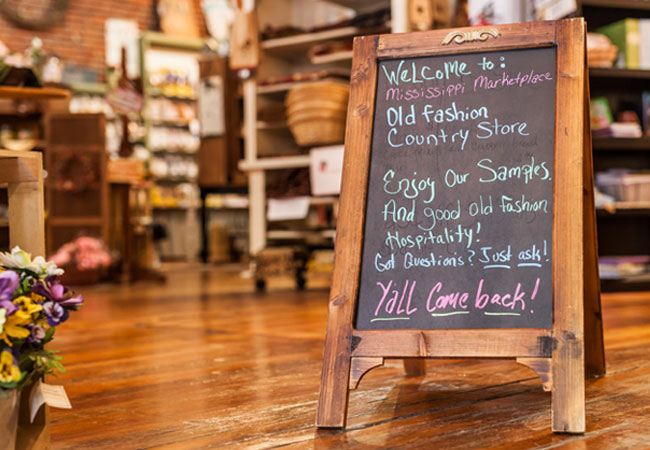 Welcome to:
Mississippi Marketplace
Old fashion
Country Store
Enjoy Our Samples.
And good old fashion
Hospitality!
Got Questions? Just ask!
Y'all Come back!